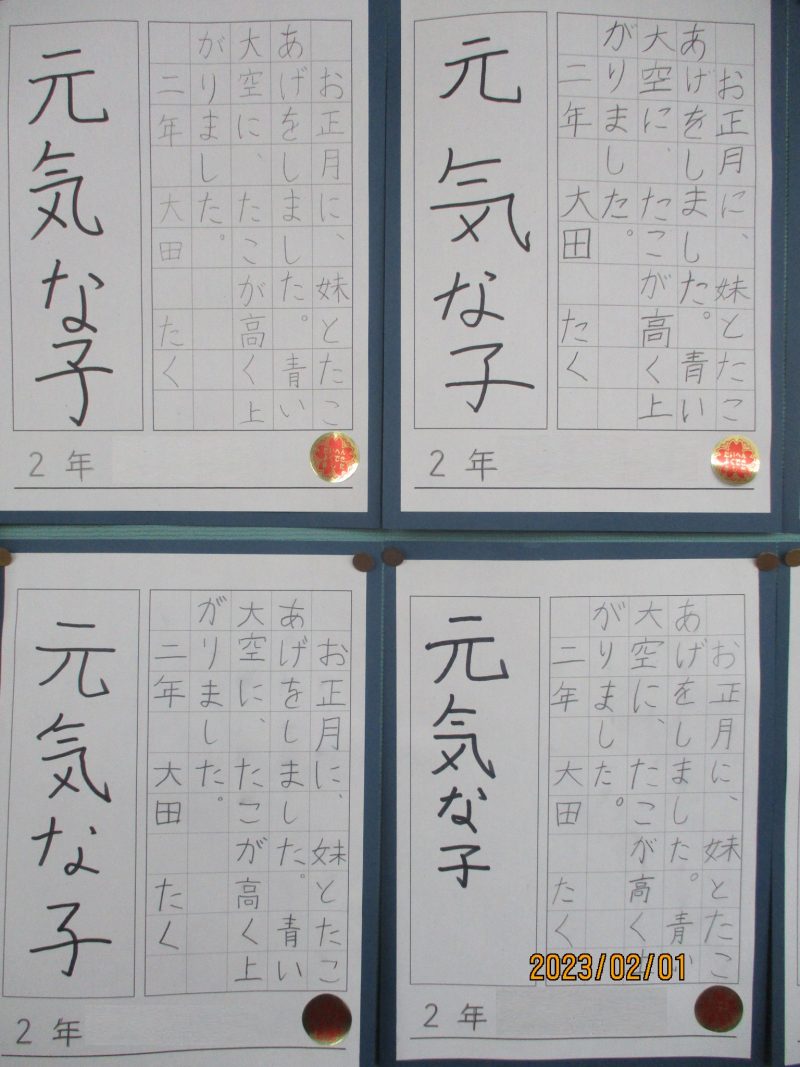 お正月に、妹とたこ
あげをしました。青い
大空に、たこが高く上
がりました。
二年 大田 たく
元気な子
2年
たいへん
よくでき
ました
お正月に、妹とたこ
あげをしました。青い
大空に、たこが高く上
がりました。
二年 大田 たく
元気な子
2年
たいへん
よくでき
ました
お正月に、妹とたこ
あげをしました。青い
大空に、たこが高く上
がりました。
二年 大田 たく
元気な子
2年
お正月に、妹とたこ
あげをしました。青い
大空に、たこが高く上
がりました。
二年 大田 たく
元気な子
2年
2023/02/01